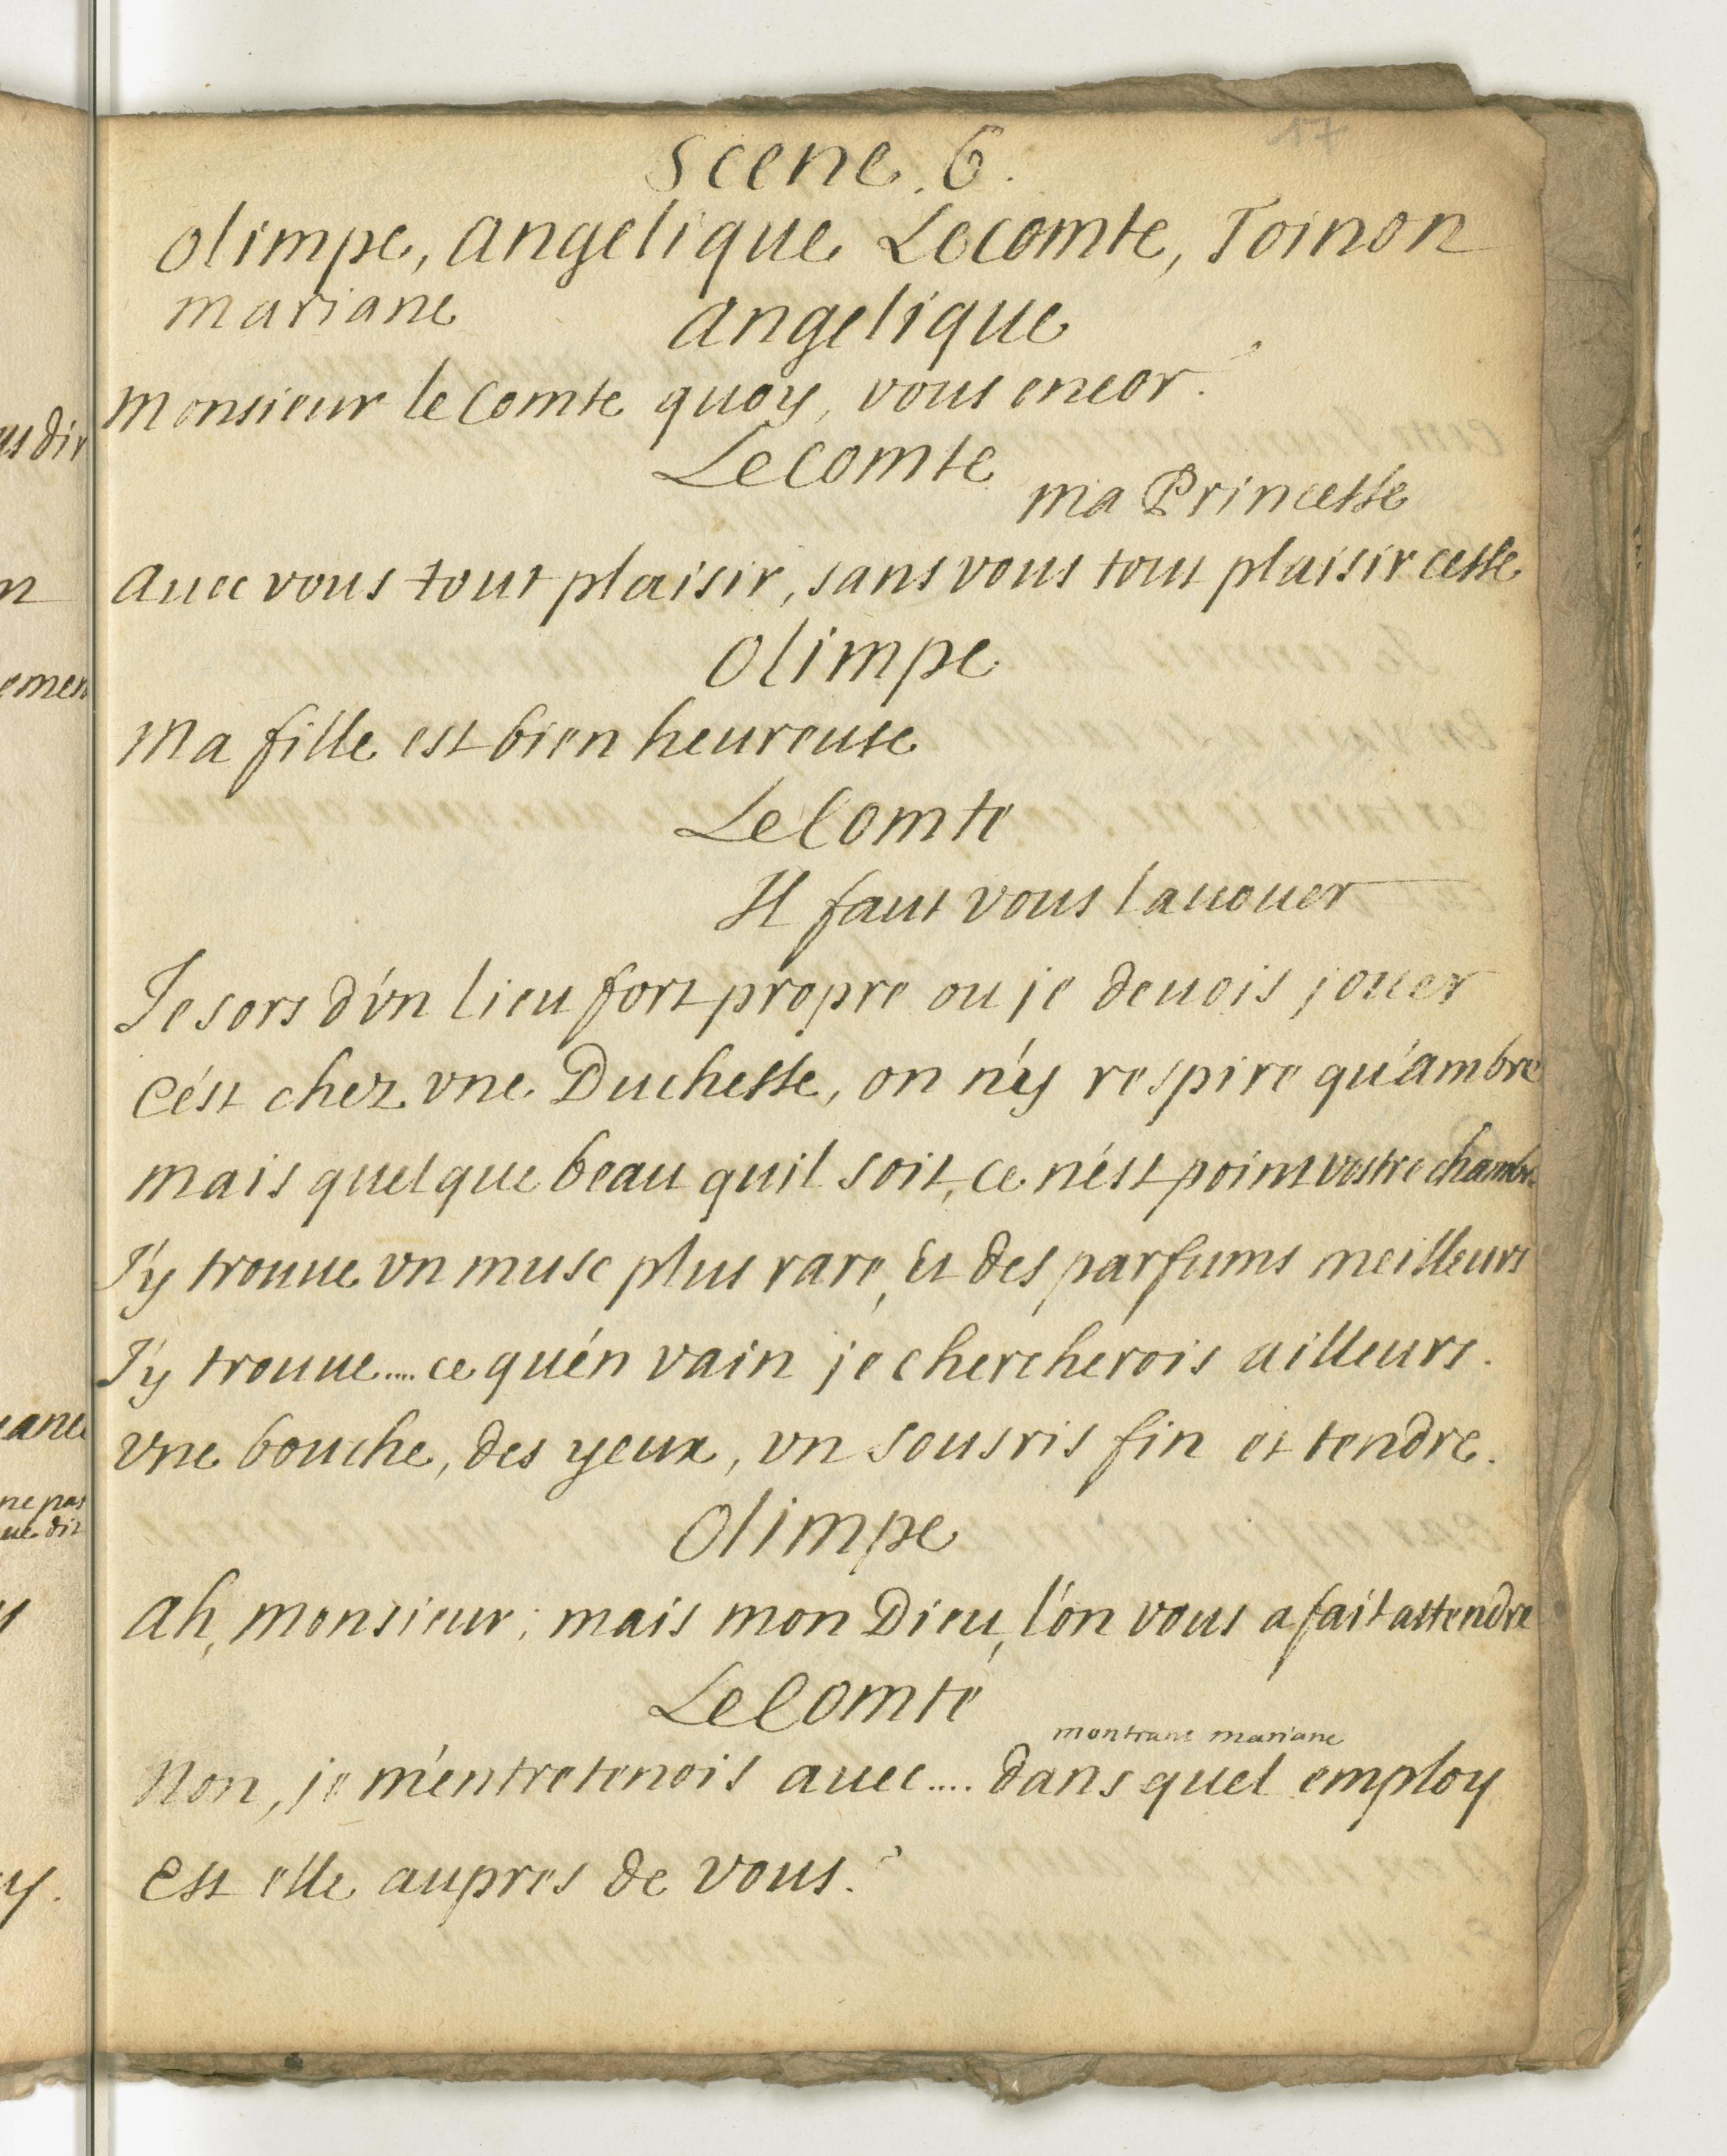 17
Scene. 6.
Olimpe, Angelique Lecomte, Toinon
mariane Angelique
Monsieur le Comte quoy, vous encor?
Lecomte
ma Princesse
Auec vous tout plaisir, sans vous tout plaisir cesse
Olimpe
Ma fille est bien heureuse
LeComte
Il faut vous lauouer
Je sors d'vn lieu fort propre ou je deuois jouer
C'est chez vne Duchesse, on n'y respire qu'ambre
mais quelque beau quil soit, ce n'est point vostre chambre
J'y trouue vn musc plus rare, Et des parfums meilleurs
J'y trouue.... ce qu'en vain je chercherois ailleurs.
Vne bouche, des yeux, vn sousris fin et tendre.
Olimpe
Ah, monsieur; mais mon Dieu, l'on vous a fait attendre
LeComte
montrant mariane
Non, je m'entretenois auec.... dans quel employ
Est elle aupres de vous?